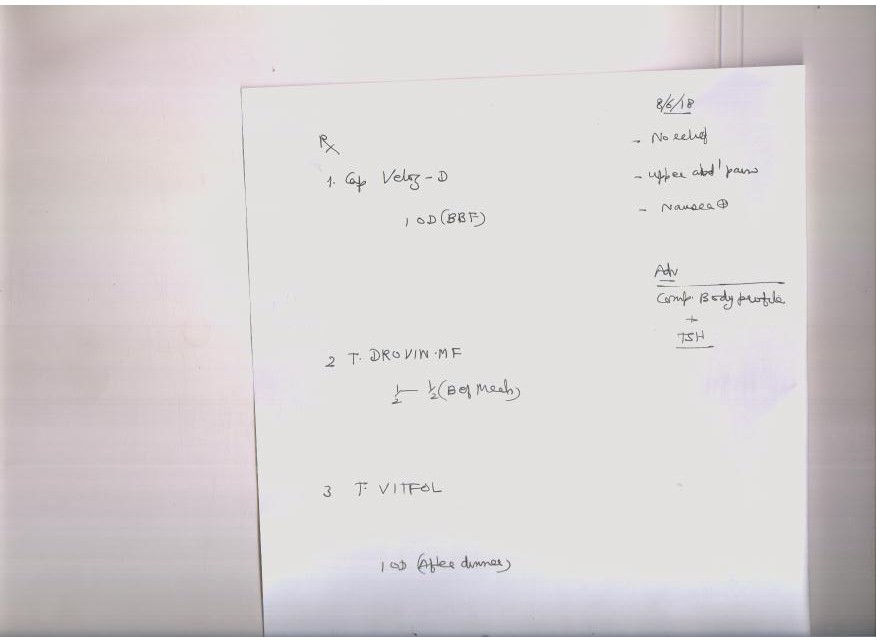 8/6/18
- No relief
- upper abd' pain
- Nausea ⊕
Adv
Comp. Body profile
+
TSH
Rx
1. Cap Veloz-D
1 OD (BBF)
2 T. DROVIN-MF
1/2 — 1/2 (Bef Meals)
3 T. VITFOL
1 OD (After dinner)